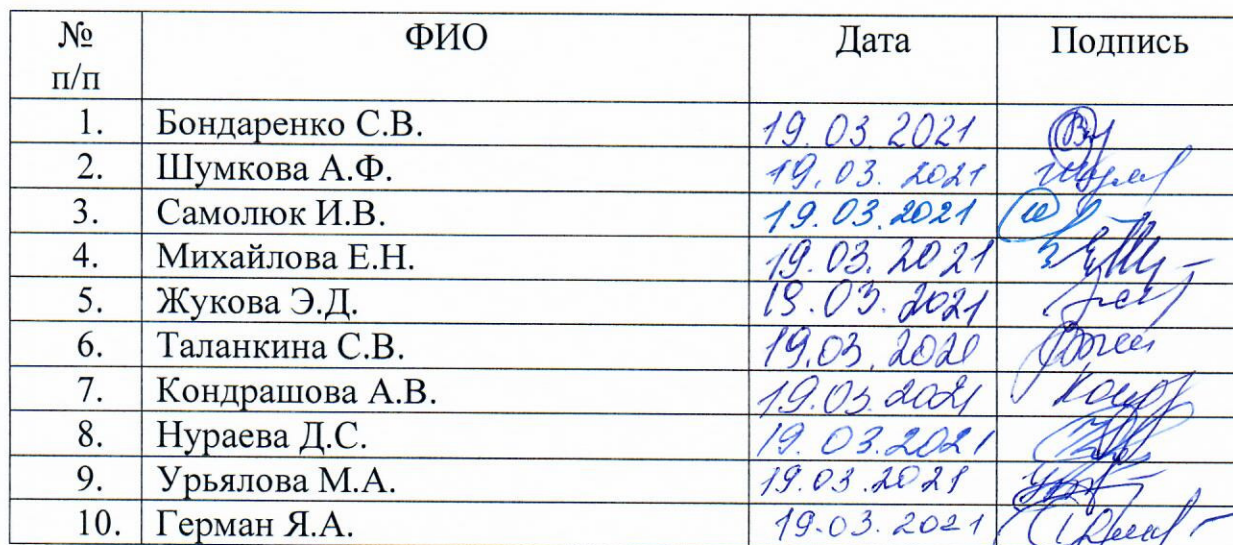 № ФИО Дата Подпись
п/п
1. Бондаренко С.В. 19.03.2021
2. Шумкова А.Ф. 19.03.2021
3. Самолюк И.В. 19.03.2021
4. Михайлова Е.Н. 19.03.2021
5. Жукова Э.Д. 19.03.2021
6. Таланкина С.В. 19.03.2021
7. Кондрашова А.В. 19.03.2021
8. Нураева Д.С. 19.03.2021
9. Урьялова М.А. 19.03.2021
10. Герман Я.А. 19.03.2021